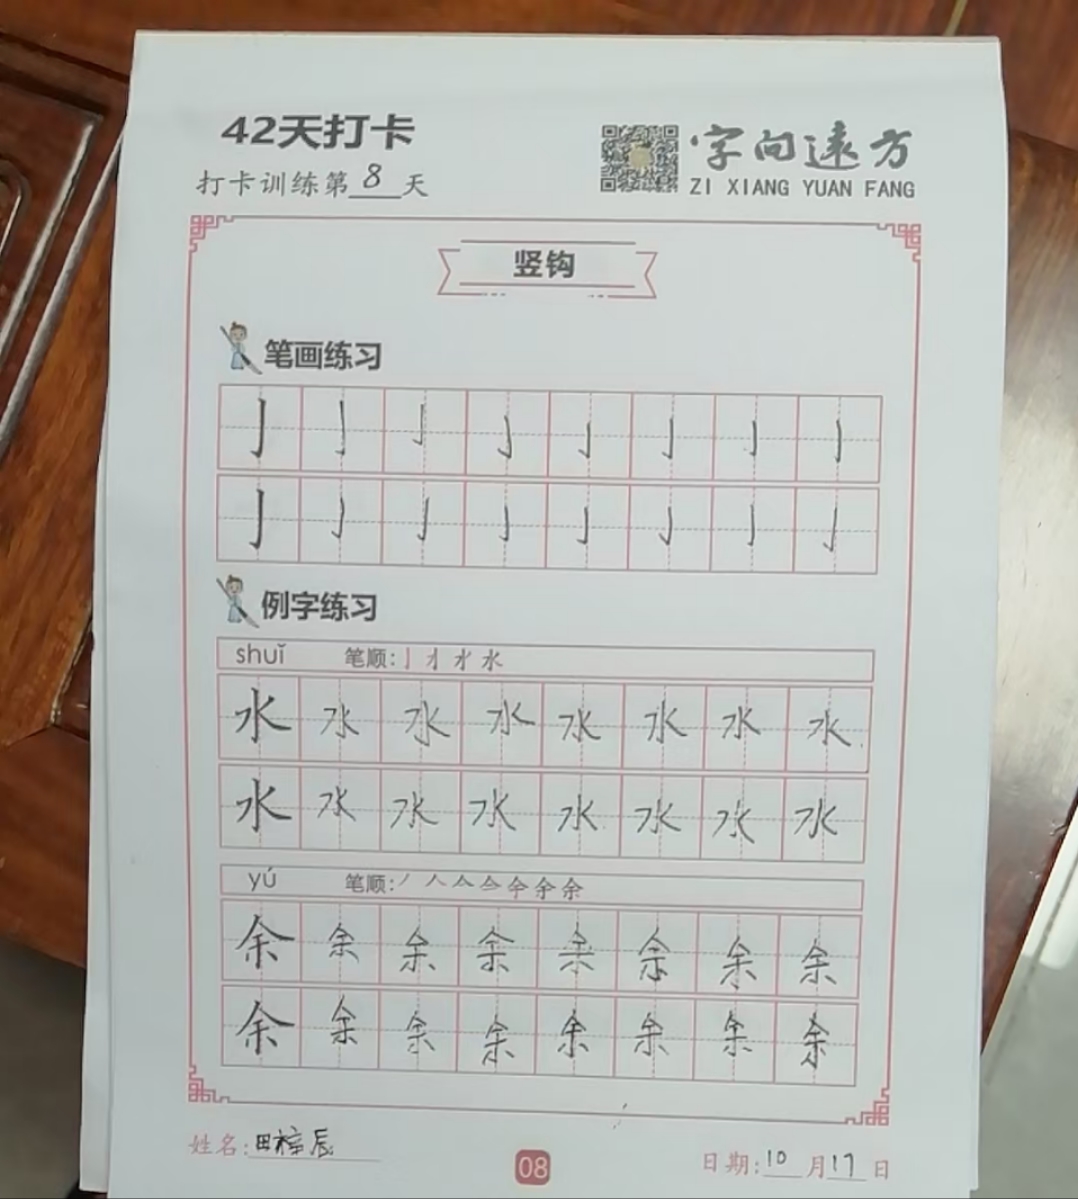 42天打卡
字向远方
打卡训练第8天
ZI XIANG YUAN FANG
竖钩
笔画练习
亅亅亅亅亅亅亅亅
亅亅亅亅亅亅亅亅
例字练习
shuǐ 笔顺:
水水水水水水水水
水水水水水水水水
yú 笔顺:
余余余余余余余余
余余余余余余余余
姓名:田梓辰
08
日期:10月17日